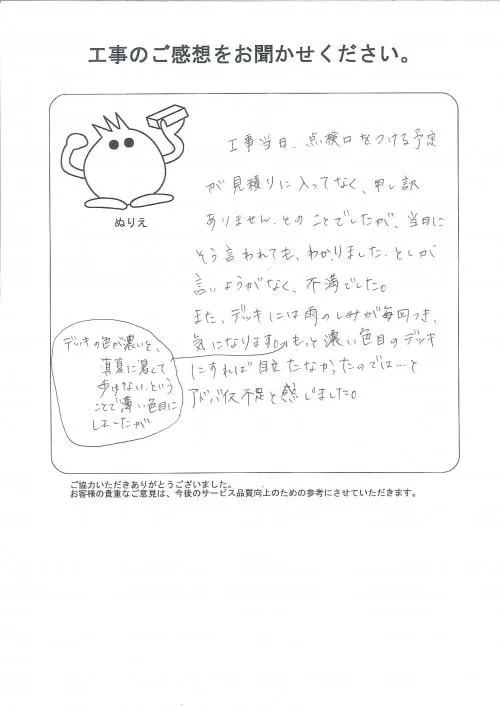 工事のご感想をお聞かせください。
ぬりえ
工事当日、点検口をつける予定
が見積りに入ってなく、申し訳
ありません。とのことでしたが、当日に
そう言われても、わかりました。としか
言いようがなく、不満でした。
また、デッキには雨のしみが毎回つき、
気になります。もっと濃い色目のデッキ
にすれば目立たなかったのでは…と
アドバイス不足と感じました。
デッキの色が濃いと、
真夏に暑くて
歩けない。という
ことで薄い色目に
しましたが
ご協力いただきありがとうございました。
お客様の貴重なご意見は、今後のサービス品質向上のための参考にさせていただきます。